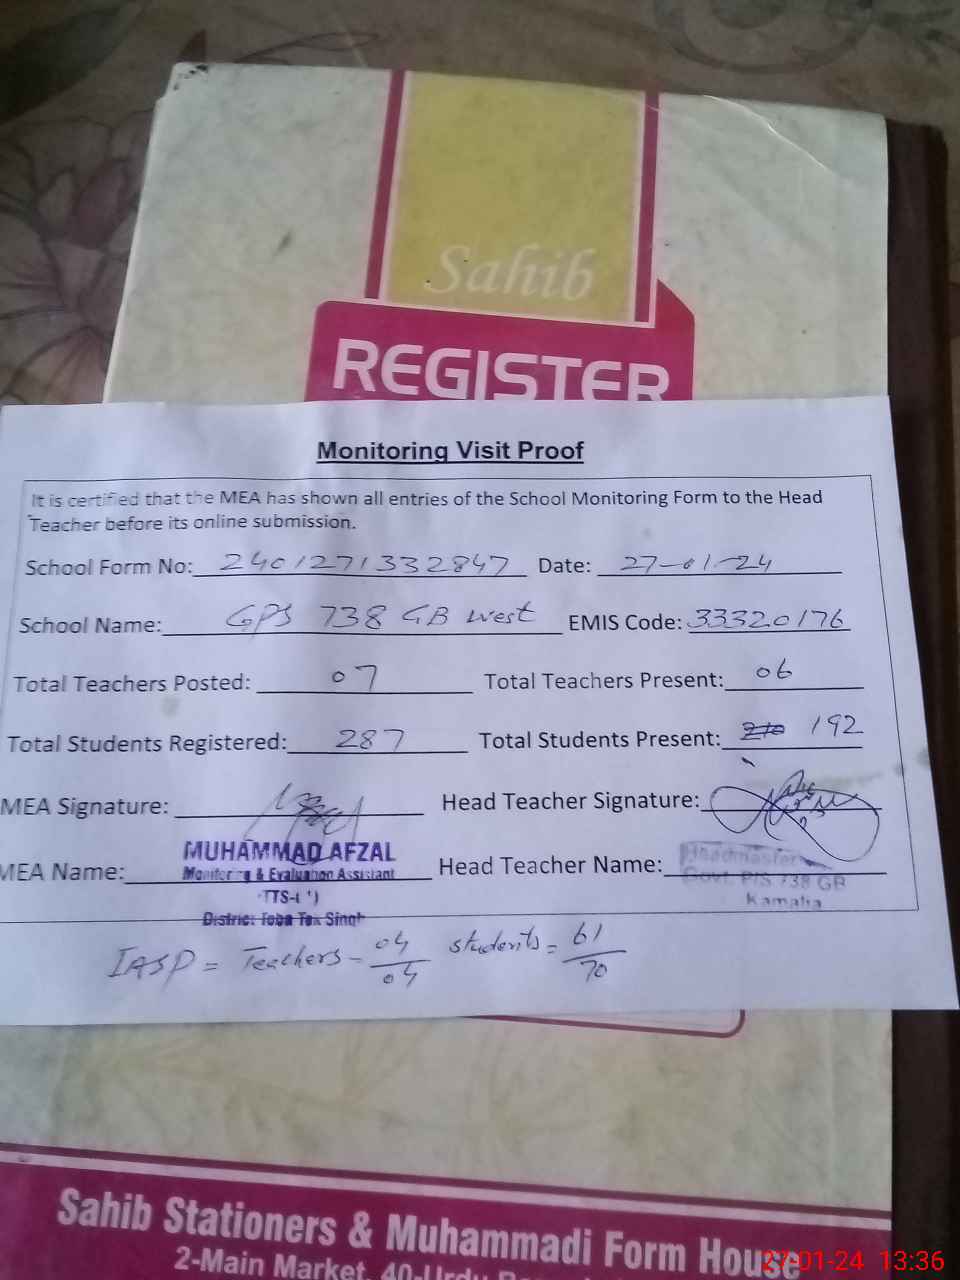 Sahib
REGISTER
Monitoring Visit Proof
It is certified that the MEA has shown all entries of the School Monitoring Form to the Head
Teacher before its online submission.
School Form No: 2401271332847 Date: 27-01-24
School Name: GPS 738 GB west EMIS Code: 33320176
Total Teachers Posted: 07 Total Teachers Present: 06
Total Students Registered: 287 Total Students Present: 192
MEA Signature: Head Teacher Signature:
MEA Name: MUHAMMAD AFZAL Head Teacher Name: Headmaster
Monitoring & Evaluation Assistant Govt. P/S 738 GB
District Toba Tek Singh Kamalia
IASP = Teachers - 04/04 students = 61/70
Sahib Stationers & Muhammadi Form House
2-Main Market, 40-Urdu
27-01-24 13:36